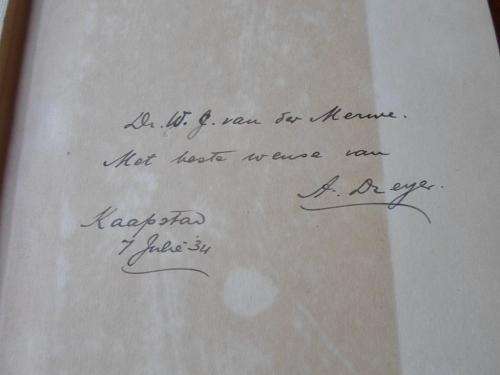 Dr. W. J. van der Merwe.
Met beste wense van
A. Dreyer.
Kaapstad
7 Julie '34